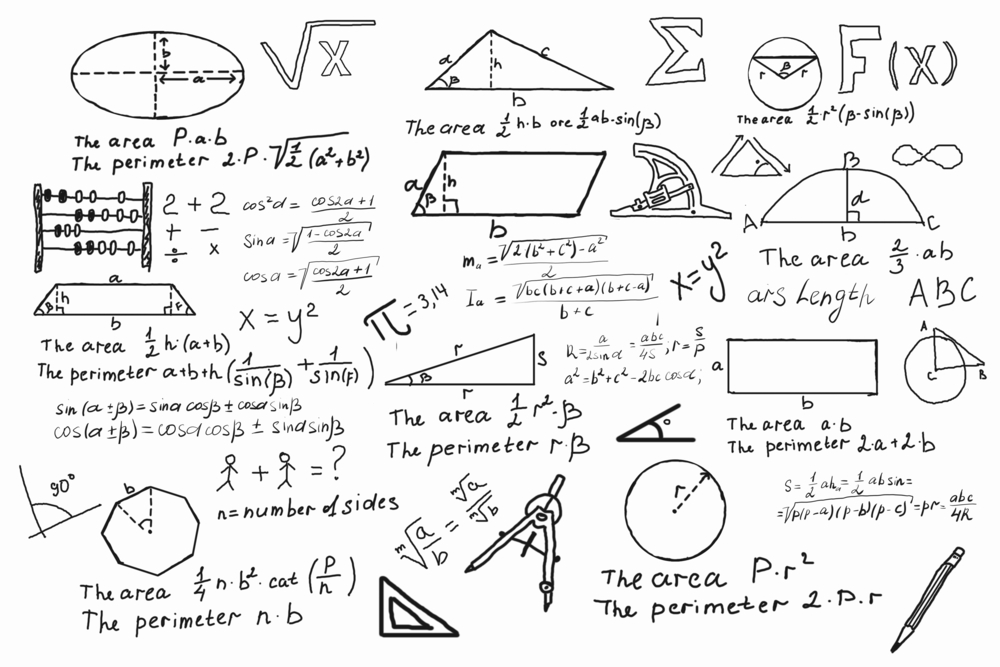 b
a
√x
a
c
β
h
b
Σ
β
r
r
F(x)
The area P.a.b
The perimeter 2.P.√1/2 (a²+b²)
The area 1/2 h.b ore 1/2 ab-sin(β)
The area 1/2.r²(β-sin(β))
2 + 2
+ −
÷ x
cos²d = cos2a+1/2
Sina = √1-cos2a/2
cosa = √cos2a+1/2
a
h
β
b
mₐ = √2(b²+c²)-a²/2
Iₐ = √bc(b+c+a)(b+c-a)/b+c
x=y²
B
A
C
d
b
The area 2/3 .ab
ars Length ABC
a
β
h
F
b
x = y²
π=3,14
The area 1/2 h.(a+b)
The perimeter a+b+h(1/sin(β)+1/sin(F))
r
S
β
r
R=a/2sind=abc/4S; r=S/P
a²=b²+c²-2bc cosd;
a
b
A
C
B
sin(a±β)=sina cosβ±cosd sinβ
cos(a±β)=cosd cosβ ± sind sinβ
The area 1/2 r².β
The perimeter r.β
The area a.b
The perimeter 2.a+2.b
90°
b
+ = ?
n=number of sides
ᵐ√a/b = ᵐ√a/ᵐ√b
r
S=1/2 ahₐ=1/2 ab sin=
=√p(p-a)(p-b)(p-c)=pr=abc/4R
The area 1/4 n.b².cat (P/n)
The perimeter n.b
The area P.r²
The perimeter 2.P.r